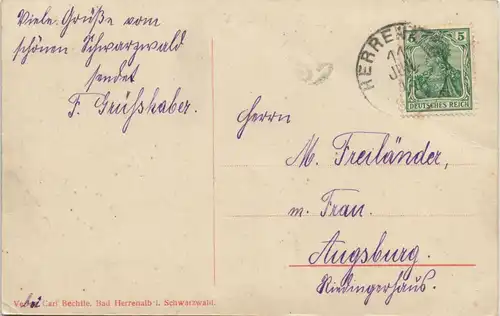 Viele Grüße vom
schönen Schwarzwald
sendet
F. Grüsshaber.
HERRENA
11
JUN.
5 5
DEUTSCHES REICH
Herrn
M. Freiländer,
m. Frau.
Augsburg.
Riedingerhaus.
Carl Bechtle, Bad Herrenalb i. Schwarzwald.